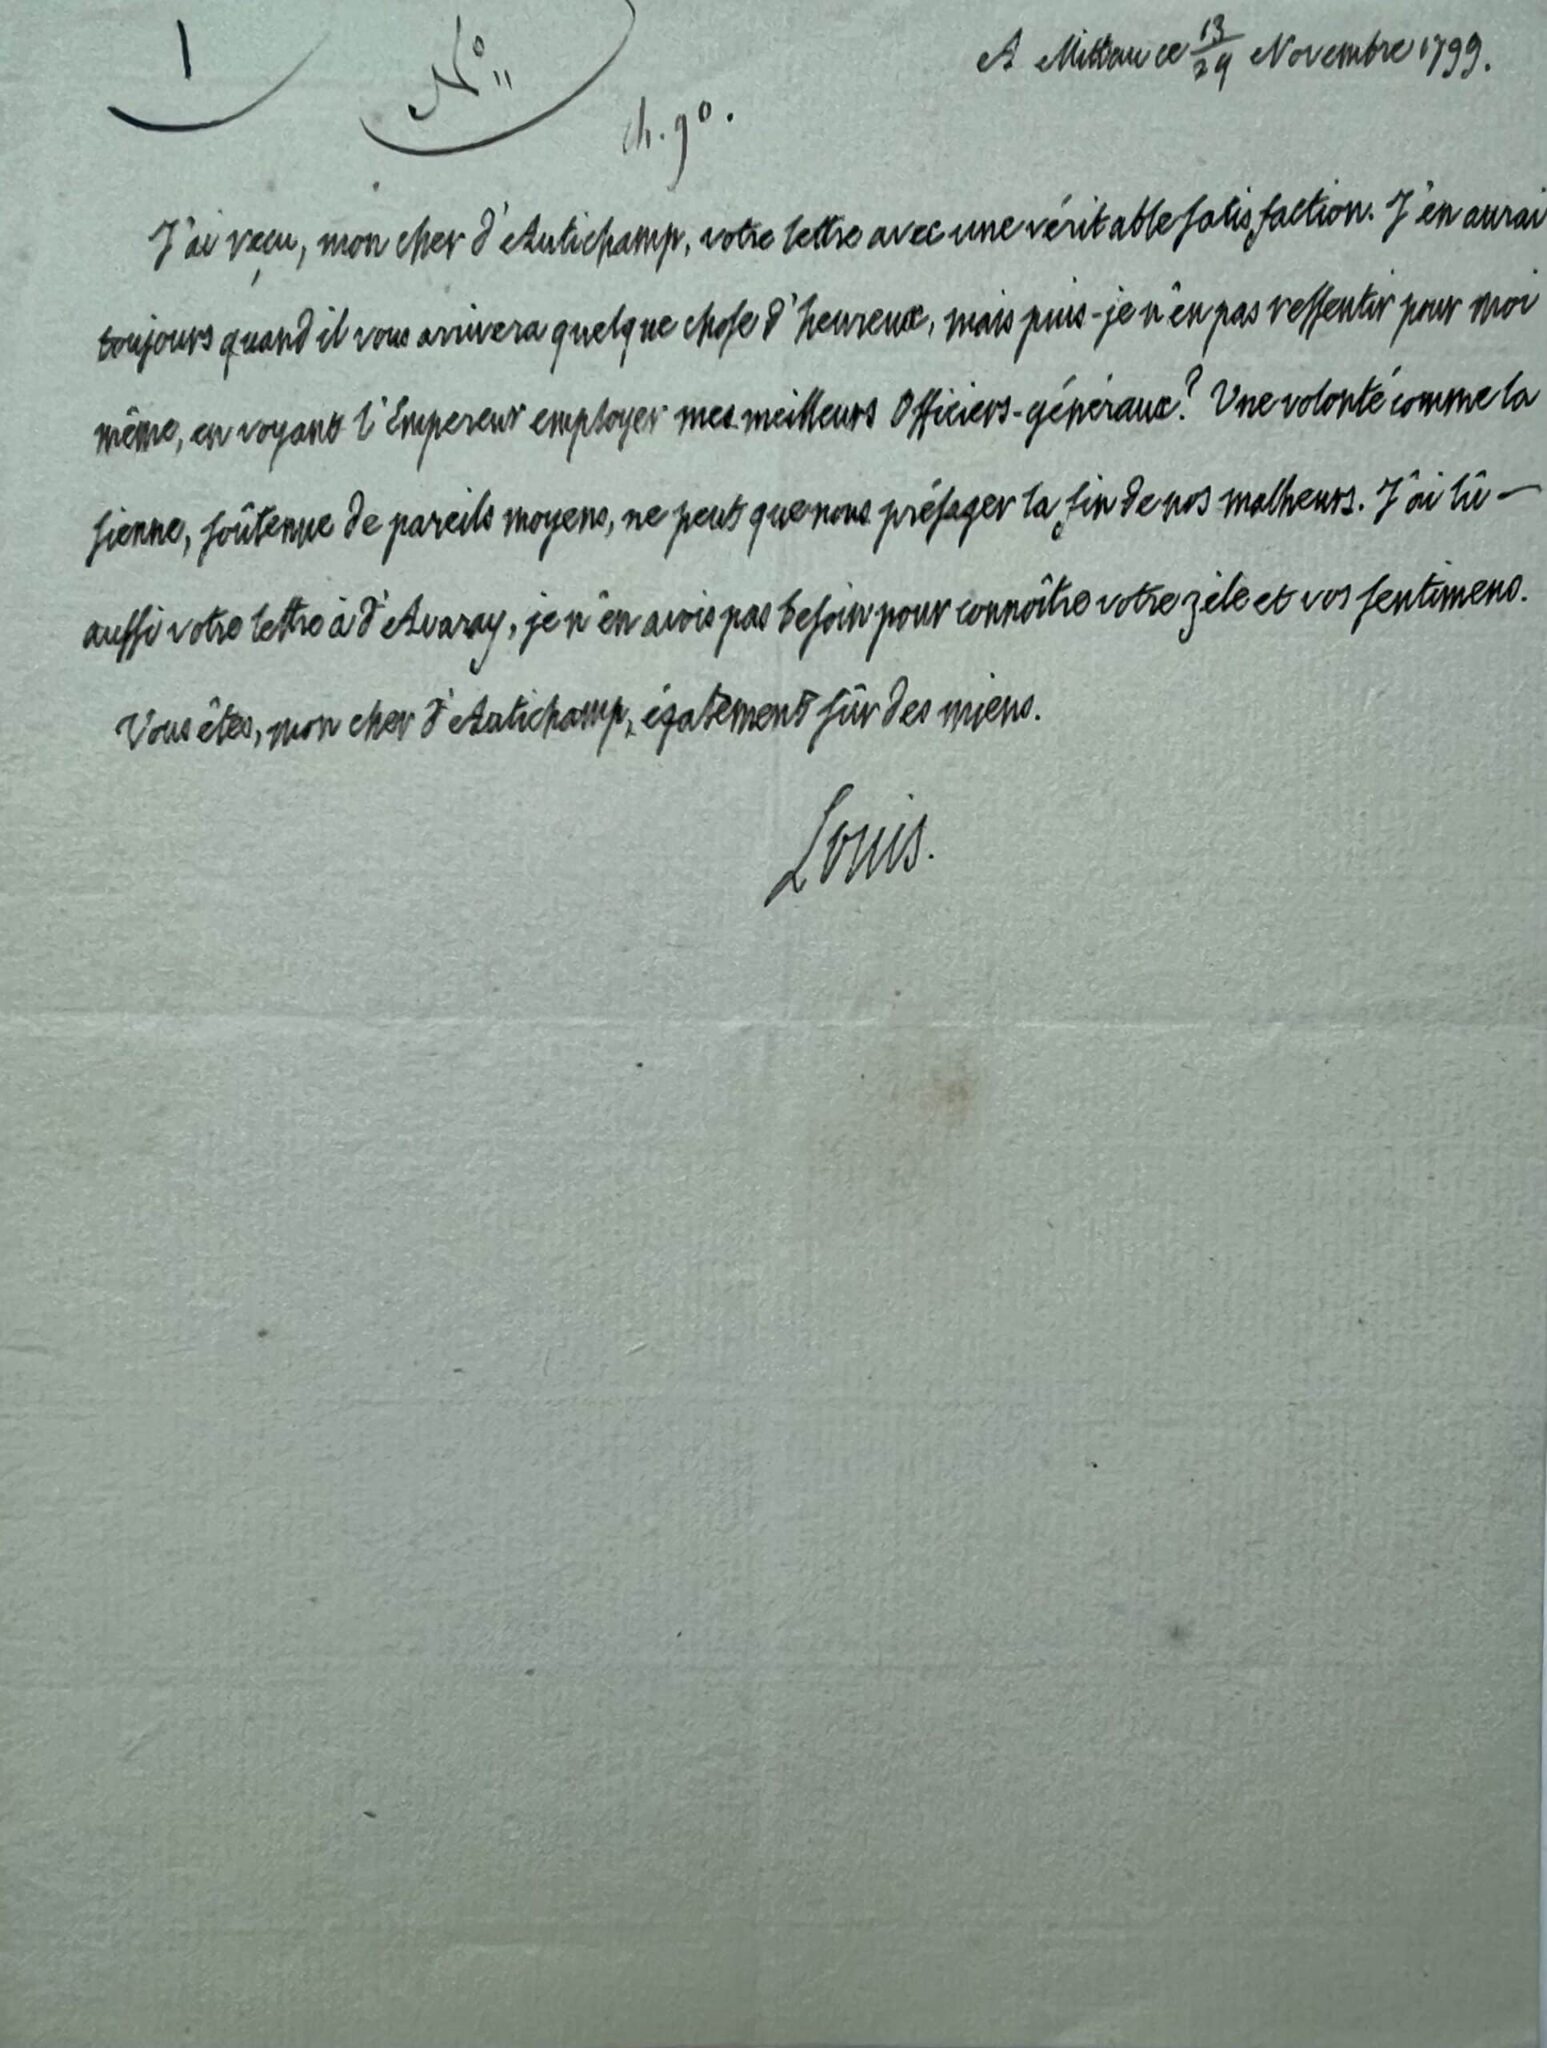 1
N° 11
ch. 9°.
A Mittau ce 13/24 Novembre 1799.
J'ai reçu, mon cher d'Autichamp, votre lettre avec une véritable satisfaction. J'en aurai
toujours quand il vous arrivera quelque chose d'heureux, mais puis-je n'en pas ressentir pour moi
même, en voyant l'Empereur employer mes meilleurs Officiers-généraux? Une volonté comme la
sienne, soûtenue de pareils moyens, ne peut que nous présager la fin de nos malheurs. J'ai lû
aussi votre lettre à d'Avaray, je n'en avois pas besoin pour connoître votre zèle et vos sentimens.
Vous êtes, mon cher d'Autichamp, également sûr des miens.
Louis.